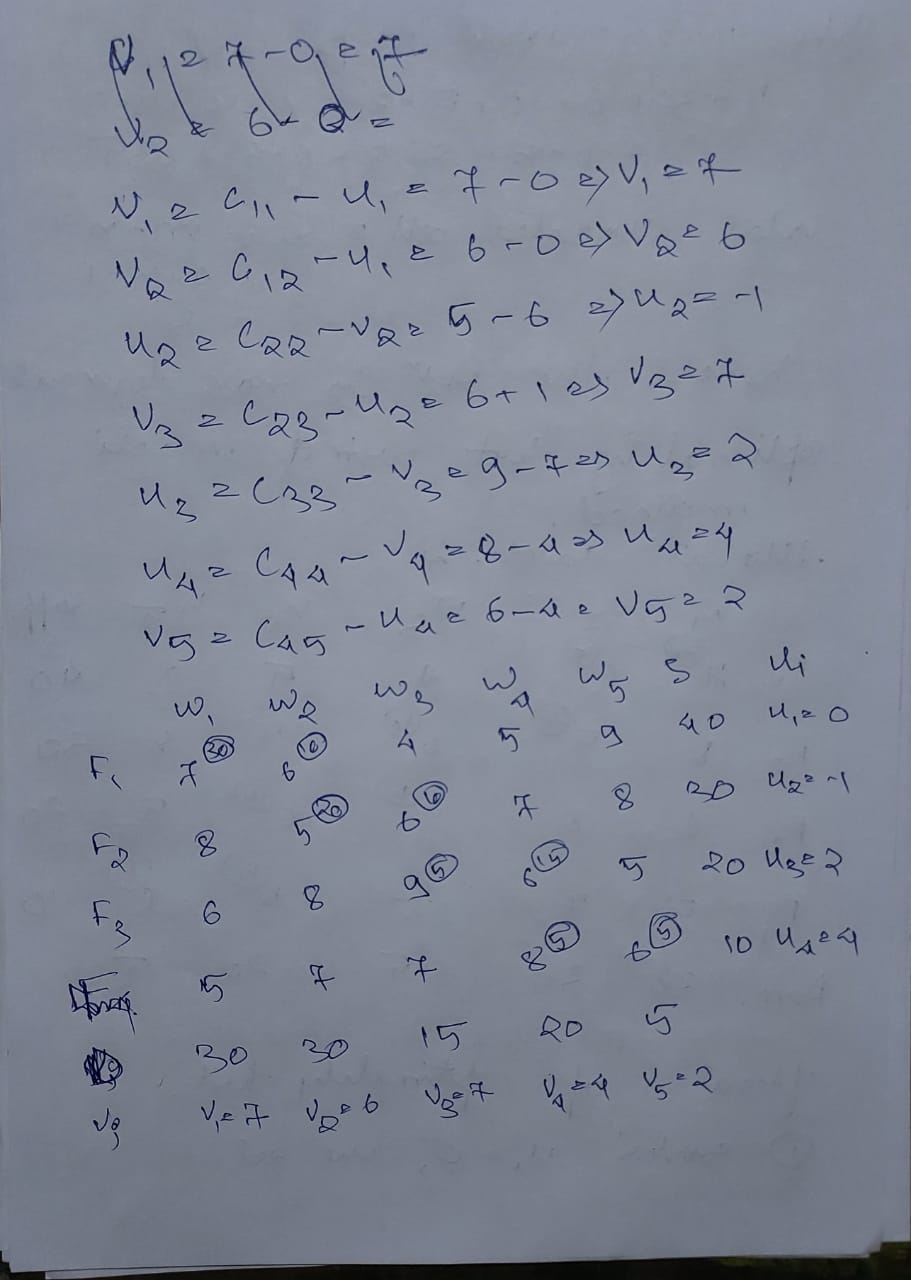 V₁ = 7 - 0 = 7
U₂ = 6 - 0 =
V₁ = C₁₁ - U₁ = 7 - 0 => V₁ = 7
V₂ = C₁₂ - U₁ = 6 - 0 => V₂ = 6
U₂ = C₂₂ - V₂ = 5 - 6 => U₂ = -1
V₃ = C₂₃ - U₂ = 6 + 1 => V₃ = 7
U₃ = C₃₃ - V₃ = 9 - 7 => U₃ = 2
U₄ = C₄₄ - V₄ = 8 - 4 => U₄ = 4
V₅ = C₄₅ - U₄ = 6 - 4 = V₅ = 2
W₁ W₂ W₃ W₄ W₅ S Ui
F₁ 7 (30) 6 (10) 4 5 9 40 U₁ = 0
F₂ 8 5 (20) 6 (10) 7 8 30 U₂ = -1
F₃ 6 8 9 (5) 6 (15) 5 20 U₃ = 2
5 7 7 8 (5) 6 (5) 10 U₄ = 4
30 30 15 20 5
Vj V₁ = 7 V₂ = 6 V₃ = 7 V₄ = 4 V₅ = 2